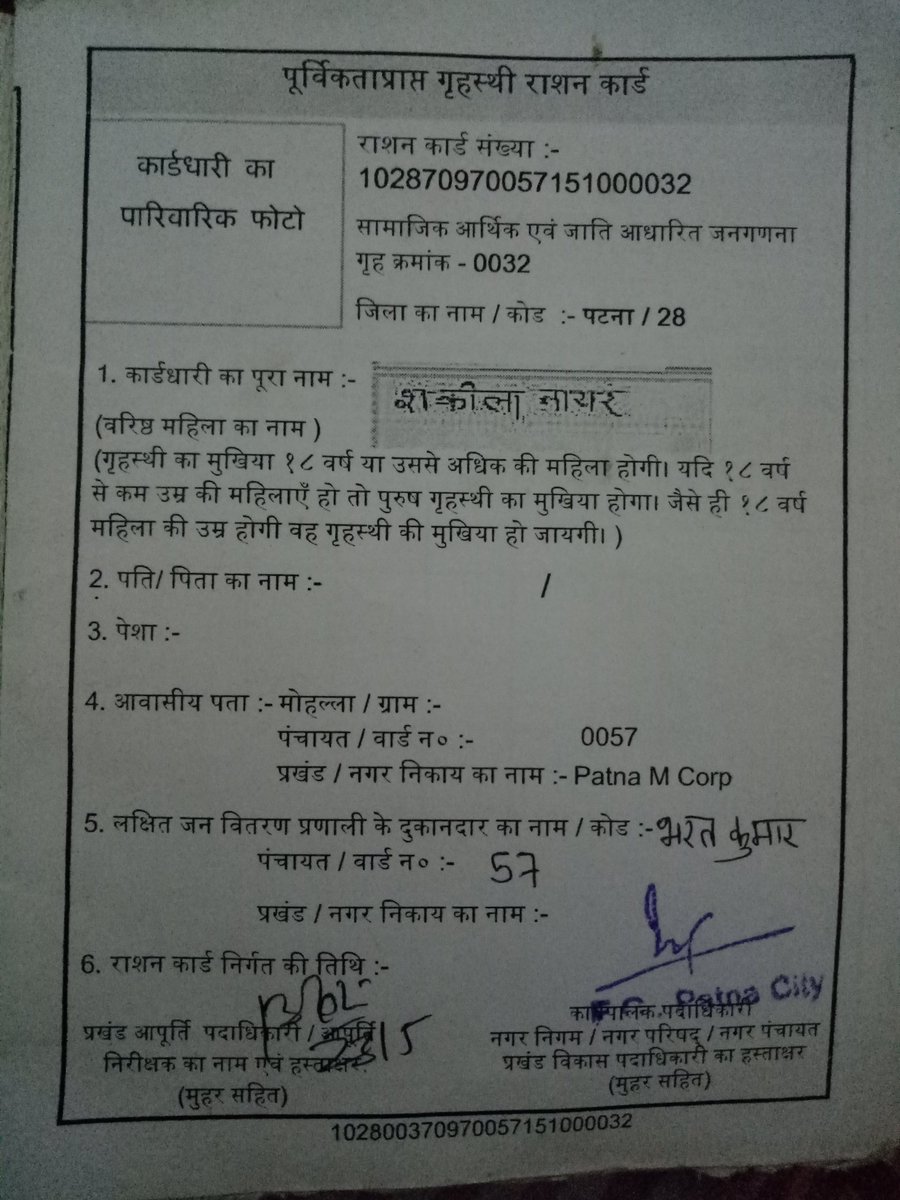 पूर्विकताप्राप्त गृहस्थी राशन कार्ड
कार्डधारी का
पारिवारिक फोटो
राशन कार्ड संख्या :-
10287097005715​1000032
सामाजिक आर्थिक एवं जाति आधारित जनगणना
गृह क्रमांक - 0032
जिला का नाम / कोड :- पटना / 28
1. कार्डधारी का पूरा नाम :- शकीला नायर
(वरिष्ठ महिला का नाम )
(गृहस्थी का मुखिया १८ वर्ष या उससे अधिक की महिला होगी। यदि १८ वर्ष
से कम उम्र की महिलाएँ हो तो पुरुष गृहस्थी का मुखिया होगा। जैसे ही १८ वर्ष
महिला की उम्र होगी वह गृहस्थी की मुखिया हो जायगी। )
2. पति/ पिता का नाम :- /
3. पेशा :-
4. आवासीय पता :- मोहल्ला / ग्राम :-
पंचायत / वार्ड न० :- 0057
प्रखंड / नगर निकाय का नाम :- Patna M Corp
5. लक्षित जन वितरण प्रणाली के दुकानदार का नाम / कोड :- भरत कुमार
पंचायत / वार्ड न० :- 57
प्रखंड / नगर निकाय का नाम :-
6. राशन कार्ड निर्गत की तिथि :-
Patna City
कार्यपालक पदाधिकारी
प्रखंड आपूर्ति पदाधिकारी / आपूर्ति
नगर निगम / नगर परिषद् / नगर पंचायत
निरीक्षक का नाम एवं हस्ताक्षर
प्रखंड विकास पदाधिकारी का हस्ताक्षर
(मुहर सहित)
(मुहर सहित)
10280037097005715​1000032